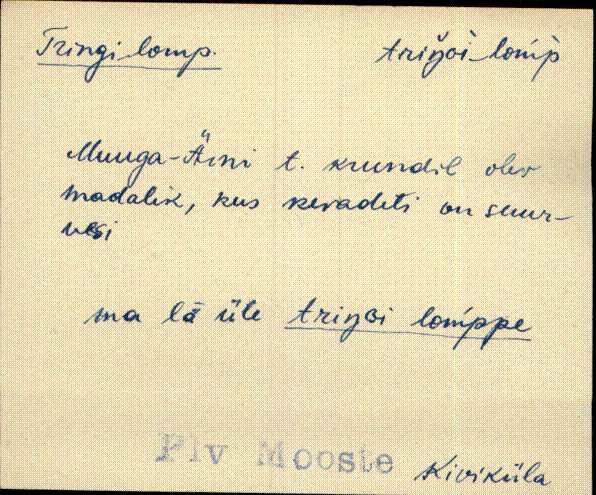 Tringi lomp. triŋɢi lomp
Muuga-Ärni t. krundil olev
madalik, kus kevadeti on suur-
vesi
ma lǟ üle triŋɢi lomppe
Plv Mooste Kiviküla